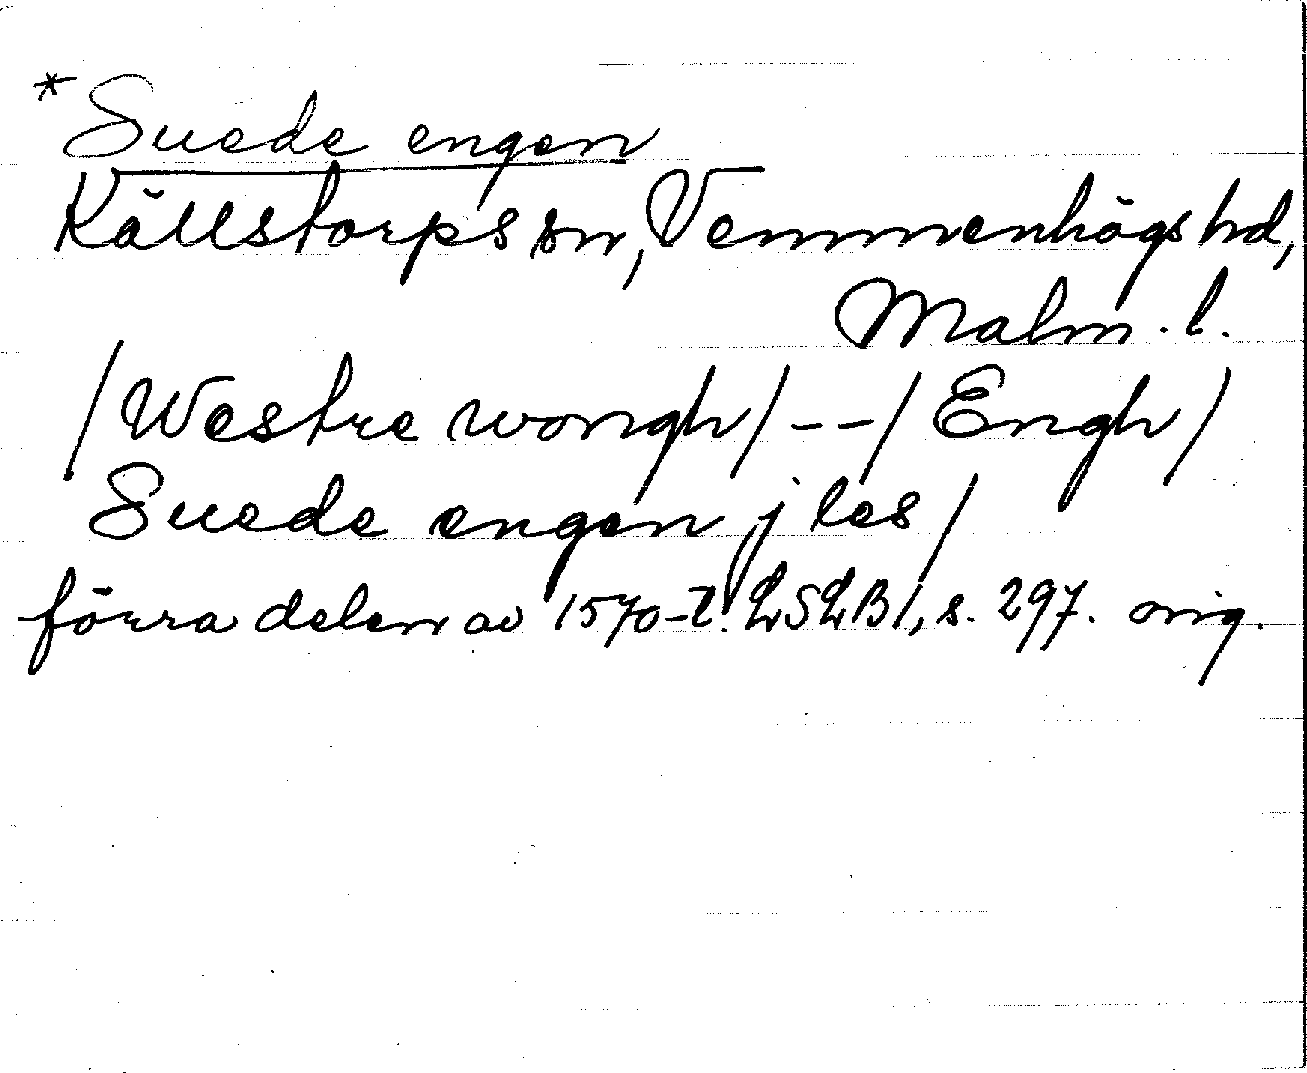 * Suede engen
Källstorps sn, Vemmenhögs hd,
Malm. l.
/Westre wongh/--/Engh/
Suede engen j les/
förra delen av 1570-t. LSLB1, s. 297. orig.